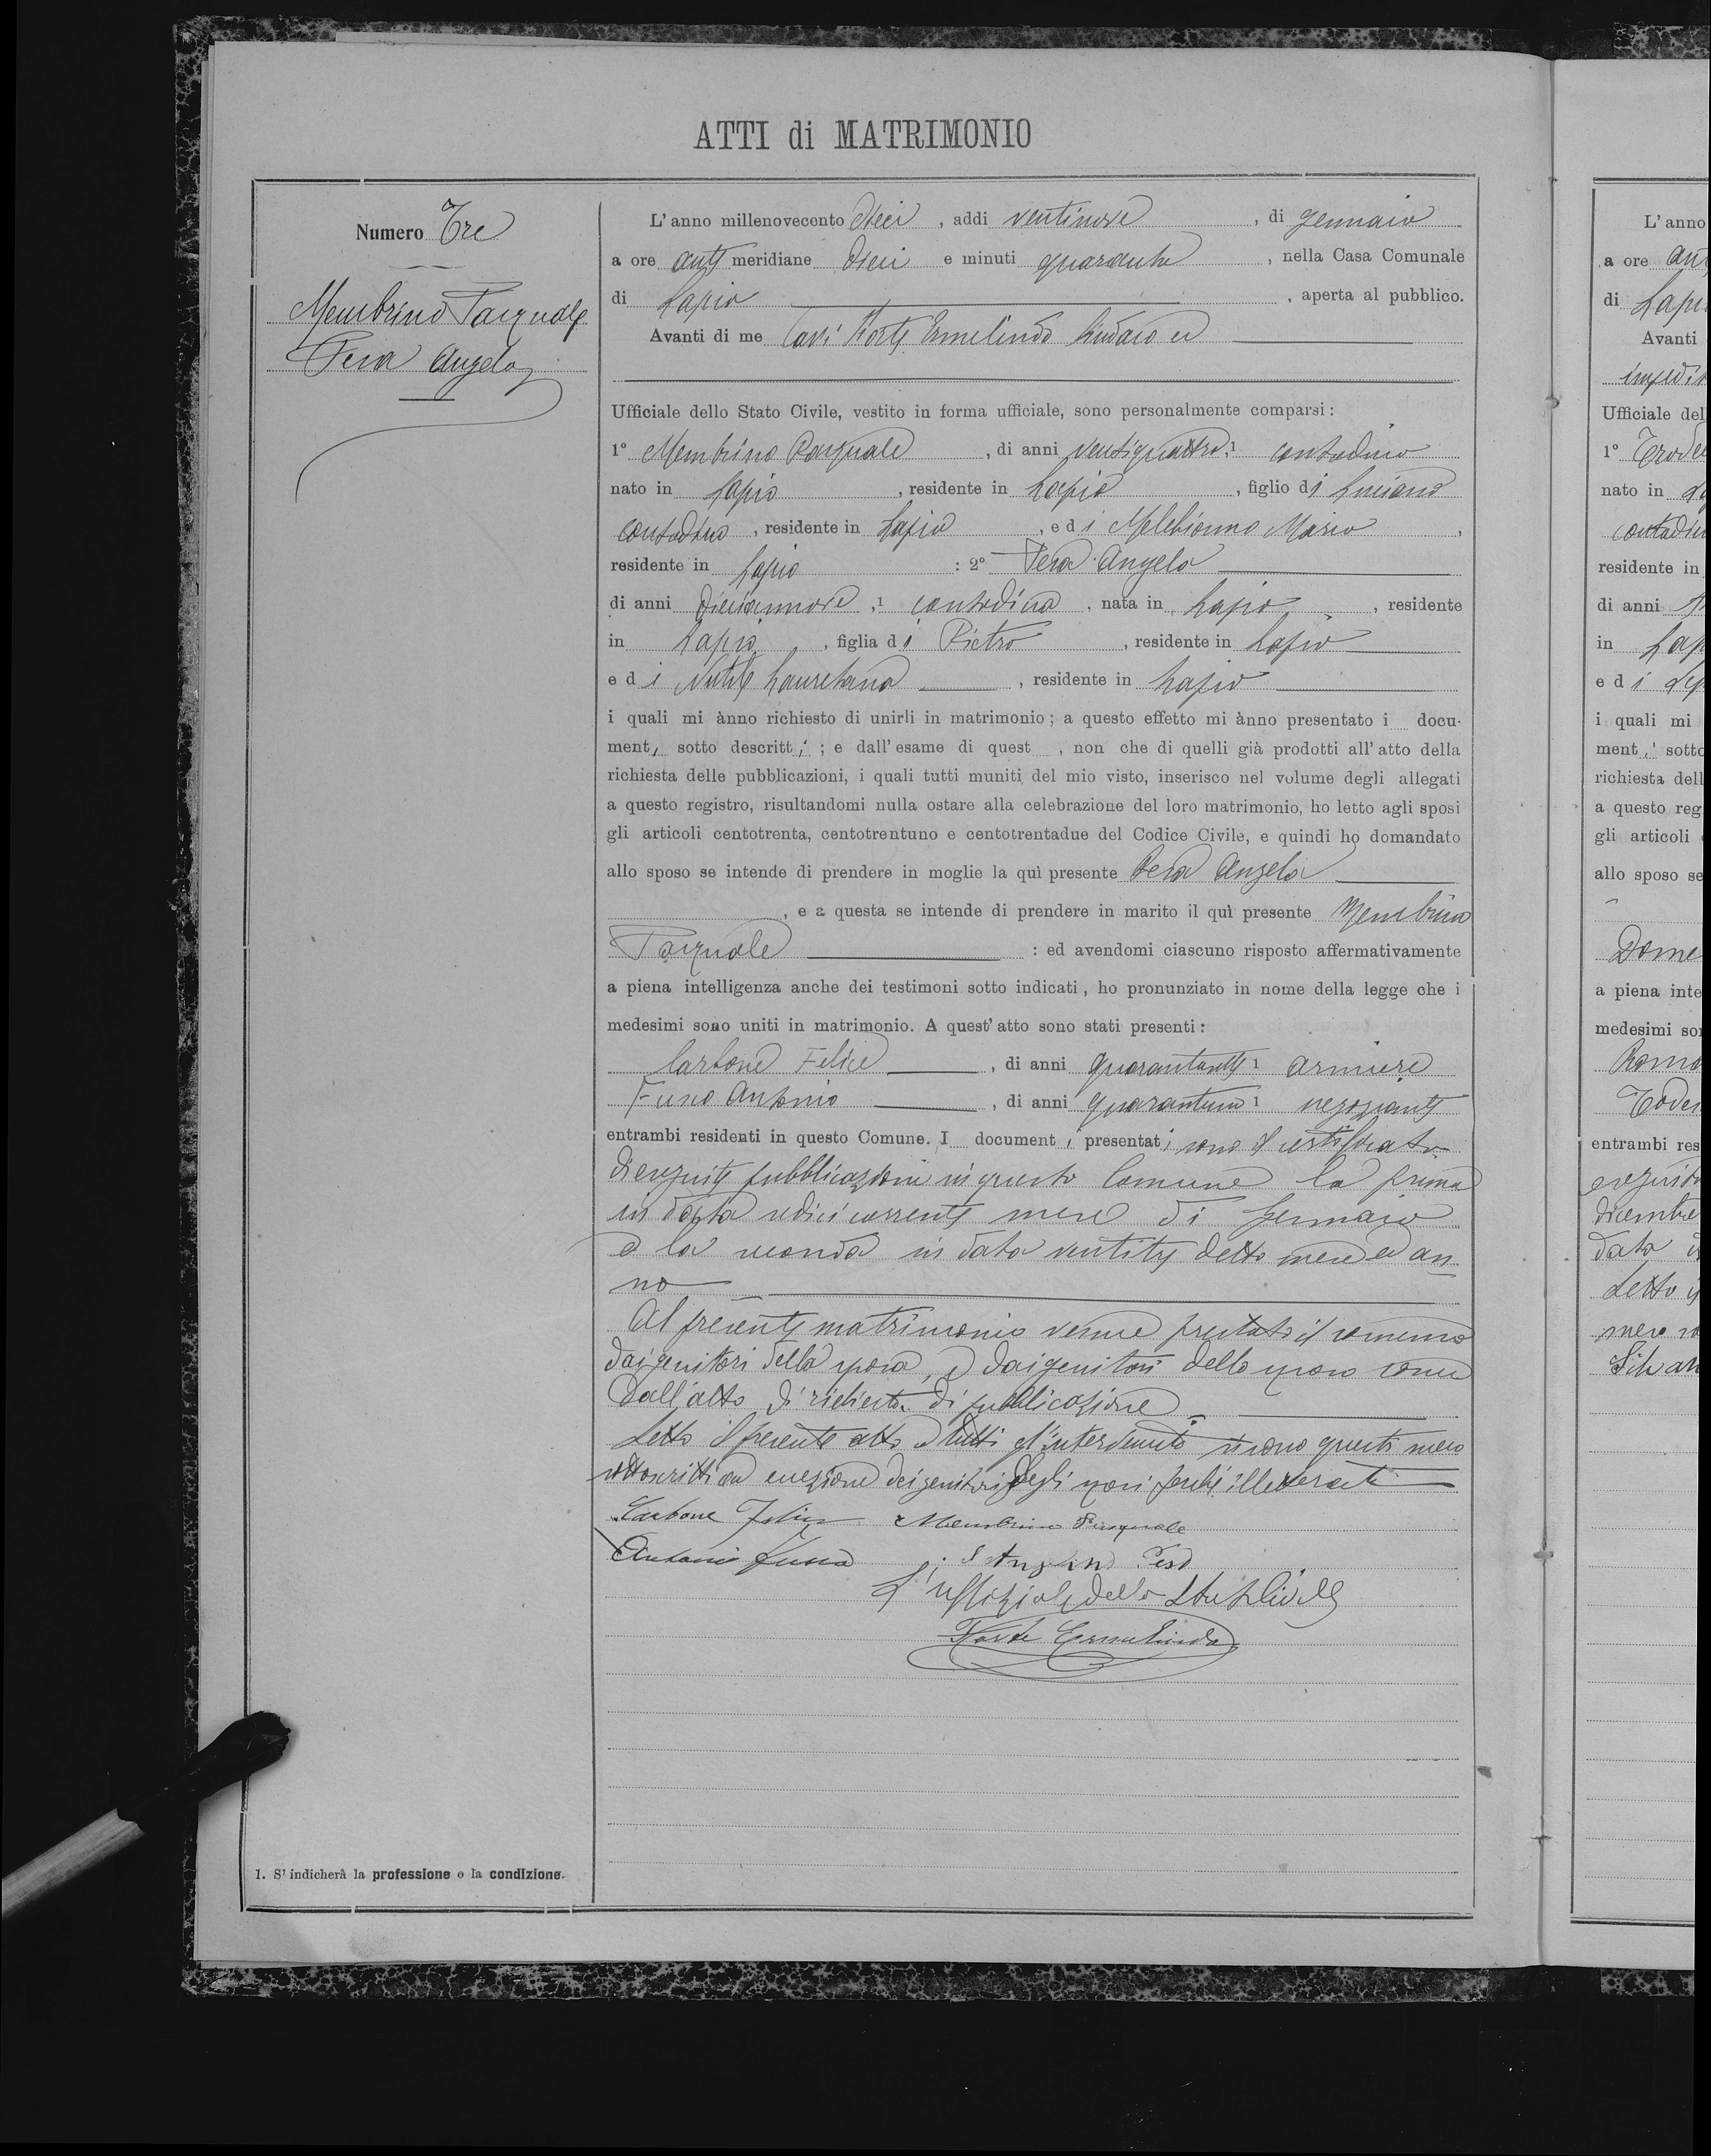 ATTI di MATRIMONIO
Numero Tre
Membrino Pasquale
Pesa Angela
L'anno millenovecento dieci, addi ventinove, di gennaio
a ore anti meridiane dieci e minuti quaranta, nella Casa Comunale
di Lapio, aperta al pubblico.
Avanti di me Cav: Forte Ermelindo Sindaco ed
Ufficiale dello Stato Civile, vestito in forma ufficiale, sono personalmente comparsi:
1° Membrino Pasquale, di anni ventiquattro, 1 contadino
nato in Lapio, residente in Lapio, figlio di Luciano
contadino, residente in Lapio, e di Melchionno Maria,
residente in Lapio: 2° Pesa Angela
di anni diciannove, 1 contadina, nata in Lapio, residente
in Lapio, figlia di Pietro, residente in Lapio
e di Nutile Lauretana, residente in Lapio
i quali mi ànno richiesto di unirli in matrimonio; a questo effetto mi ànno presentato i docu-
menti sotto descritti; e dall'esame di quest , non che di quelli già prodotti all'atto della
richiesta delle pubblicazioni, i quali tutti muniti del mio visto, inserisco nel volume degli allegati
a questo registro, risultandomi nulla ostare alla celebrazione del loro matrimonio, ho letto agli sposi
gli articoli centotrenta, centotrentuno e centotrentadue del Codice Civile, e quindi ho domandato
allo sposo se intende di prendere in moglie la quì presente Pesa Angela
, e a questa se intende di prendere in marito il quì presente Membrino
Pasquale : ed avendomi ciascuno risposto affermativamente
a piena intelligenza anche dei testimoni sotto indicati, ho pronunziato in nome della legge che i
medesimi sono uniti in matrimonio. A quest'atto sono stati presenti:
Carbone Felice, di anni 1 armiere
Fusco Antonio, di anni quarantuno 1 negoziante
entrambi residenti in questo Comune. I documenti presentati sono il certificato
di eseguite pubblicazioni in questo Comune la prima
in data sedici corrente mese di gennaio
e la seconda in data ventitre detto mese ed an
no
Al presente matrimonio venne prestato il consenso
dai genitori della sposa, e dai genitori dello sposo come
dall'atto di richiesta di pubblicazione
Letto il presente atto a tutti gl'intervenuti si sono questi meco
sottoscritti ad eccezione dei genitori degli sposi perché illetterati
Carbone Felice Membrino Pasquale
Antonio Fusco Angela Pesa
L'uffiziale dello Stato Civile
Forte Ermelindo
1. S'indicherà la professione o la condizione.
L'anno
a ore
di Lapio
Avanti
Ufficiale del
1°
nato in
residente in
di anni
in
e di
i quali mi
menti sotto
richiesta dell
a questo reg
gli articoli
allo sposo se
Dome
a piena inte
medesimi so
entrambi res
dicembre
data